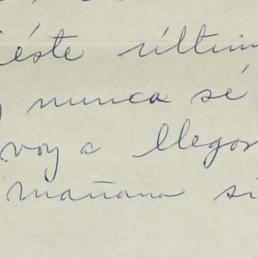 éste últim
nunca sé
voy a llegar
mañana si